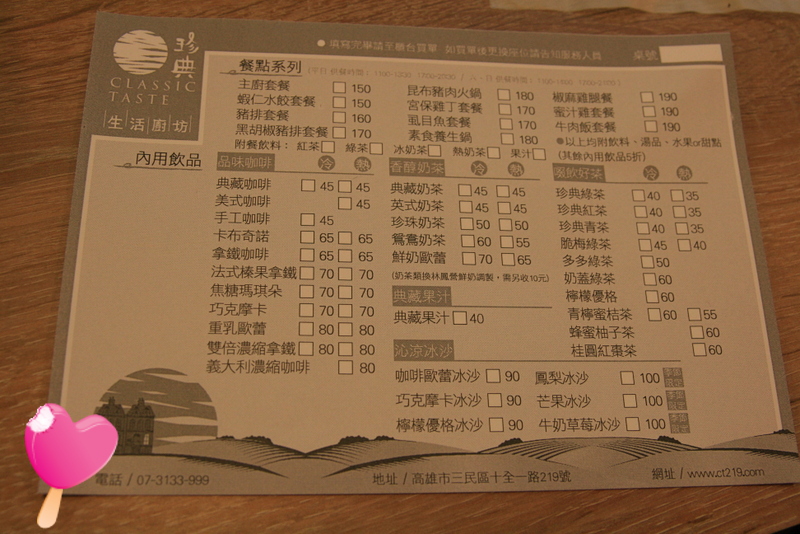 珍典
CLASSIC
TASTE
生活廚坊
●填寫完畢請至櫃台買單 如買單後更換座位請告知服務人員 桌號
餐點系列
主廚套餐 150 昆布豬肉火鍋 180 椒麻雞腿餐 190
蝦仁水餃套餐 150 宮保雞丁套餐 170 蜜汁雞套餐 190
豬排套餐 160 虱目魚套餐 170 牛肉飯套餐 190
黑胡椒豬排套餐 170 素食養生鍋 180 ●以上均附飲料、湯品、水果or甜點
附餐飲料： 紅茶 綠茶 冰奶茶 熱奶茶 果汁 (其餘內用飲品5折)
內用飲品
品味咖啡 冷 熱
典藏咖啡 45 45
美式咖啡 45
手工咖啡 45
卡布奇諾 65 65
拿鐵咖啡 65 65
法式榛果拿鐵 70 70
焦糖瑪琪朵 70 70
巧克摩卡 70 70
重乳歐蕾 80 80
雙倍濃縮拿鐵 80 80
義大利濃縮咖啡 80
香醇奶茶 冷 熱
典藏奶茶 45 45
英式奶茶 45 45
珍珠奶茶 50 50
鴛鴦奶茶 60 55
鮮奶歐蕾 70 65
(奶茶類換林鳳營鮮奶調製，需另收10元)
典藏果汁
典藏果汁 40
沁涼冰沙
咖啡歐蕾冰沙 90 鳳梨冰沙 100
巧克摩卡冰沙 90 芒果冰沙 100
檸檬優格冰沙 90 牛奶草莓冰沙 100
好茶 冷 熱
珍典綠茶 40 35
珍典紅茶 40 35
珍典青茶 40 35
脆梅綠茶 45 40
多多綠茶 50
奶蓋綠茶 60
檸檬優格 60
青檸蜜桔茶 60 55
蜂蜜柚子茶 60
桂圓紅棗茶 60
電話 / 07-3133-999 地址 / 高雄市三民區十全一路219號 網址 / www.ct219.com